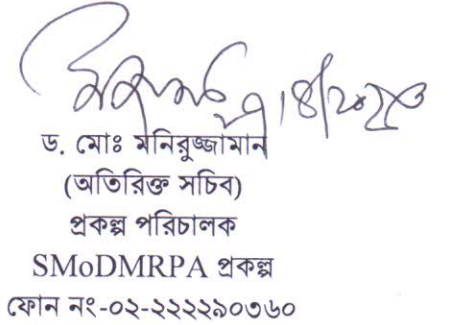 ড. মোঃ মনিরুজ্জামান
(অতিরিক্ত সচিব)
প্রকল্প পরিচালক
SMoDMRPA প্রকল্প
ফোন নং-০২-২২২২৯০৩৬০